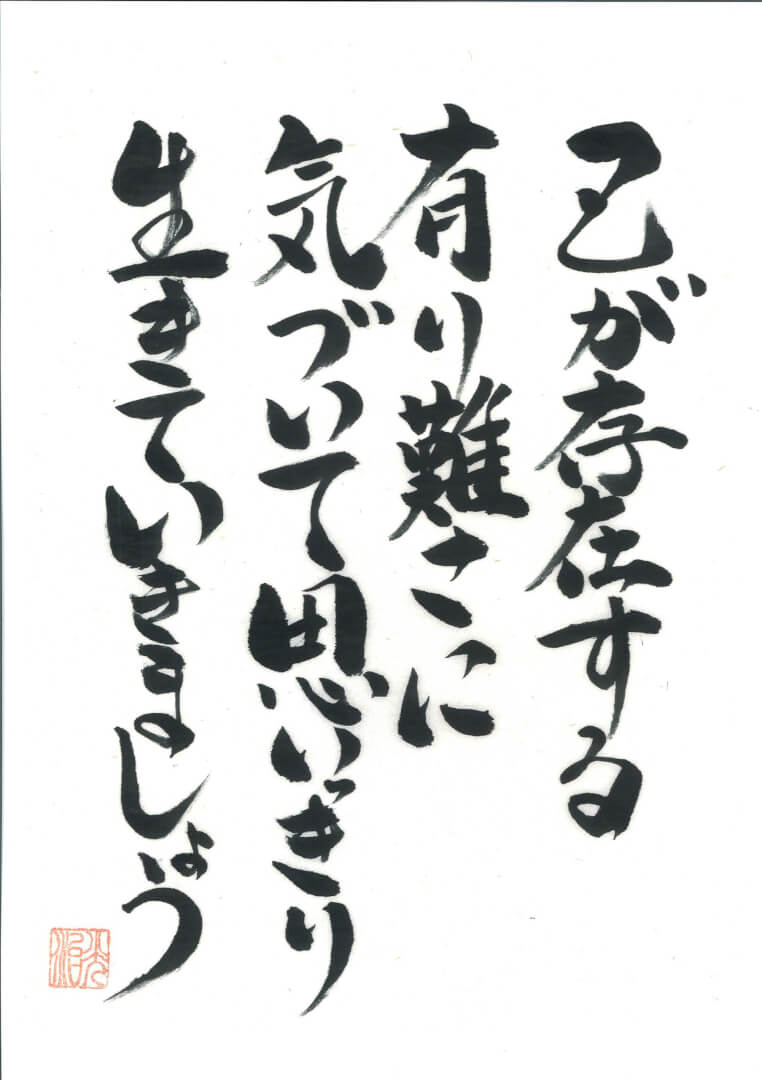 己が存在する
有り難さに
気づいて思いきり
生きていきましょう